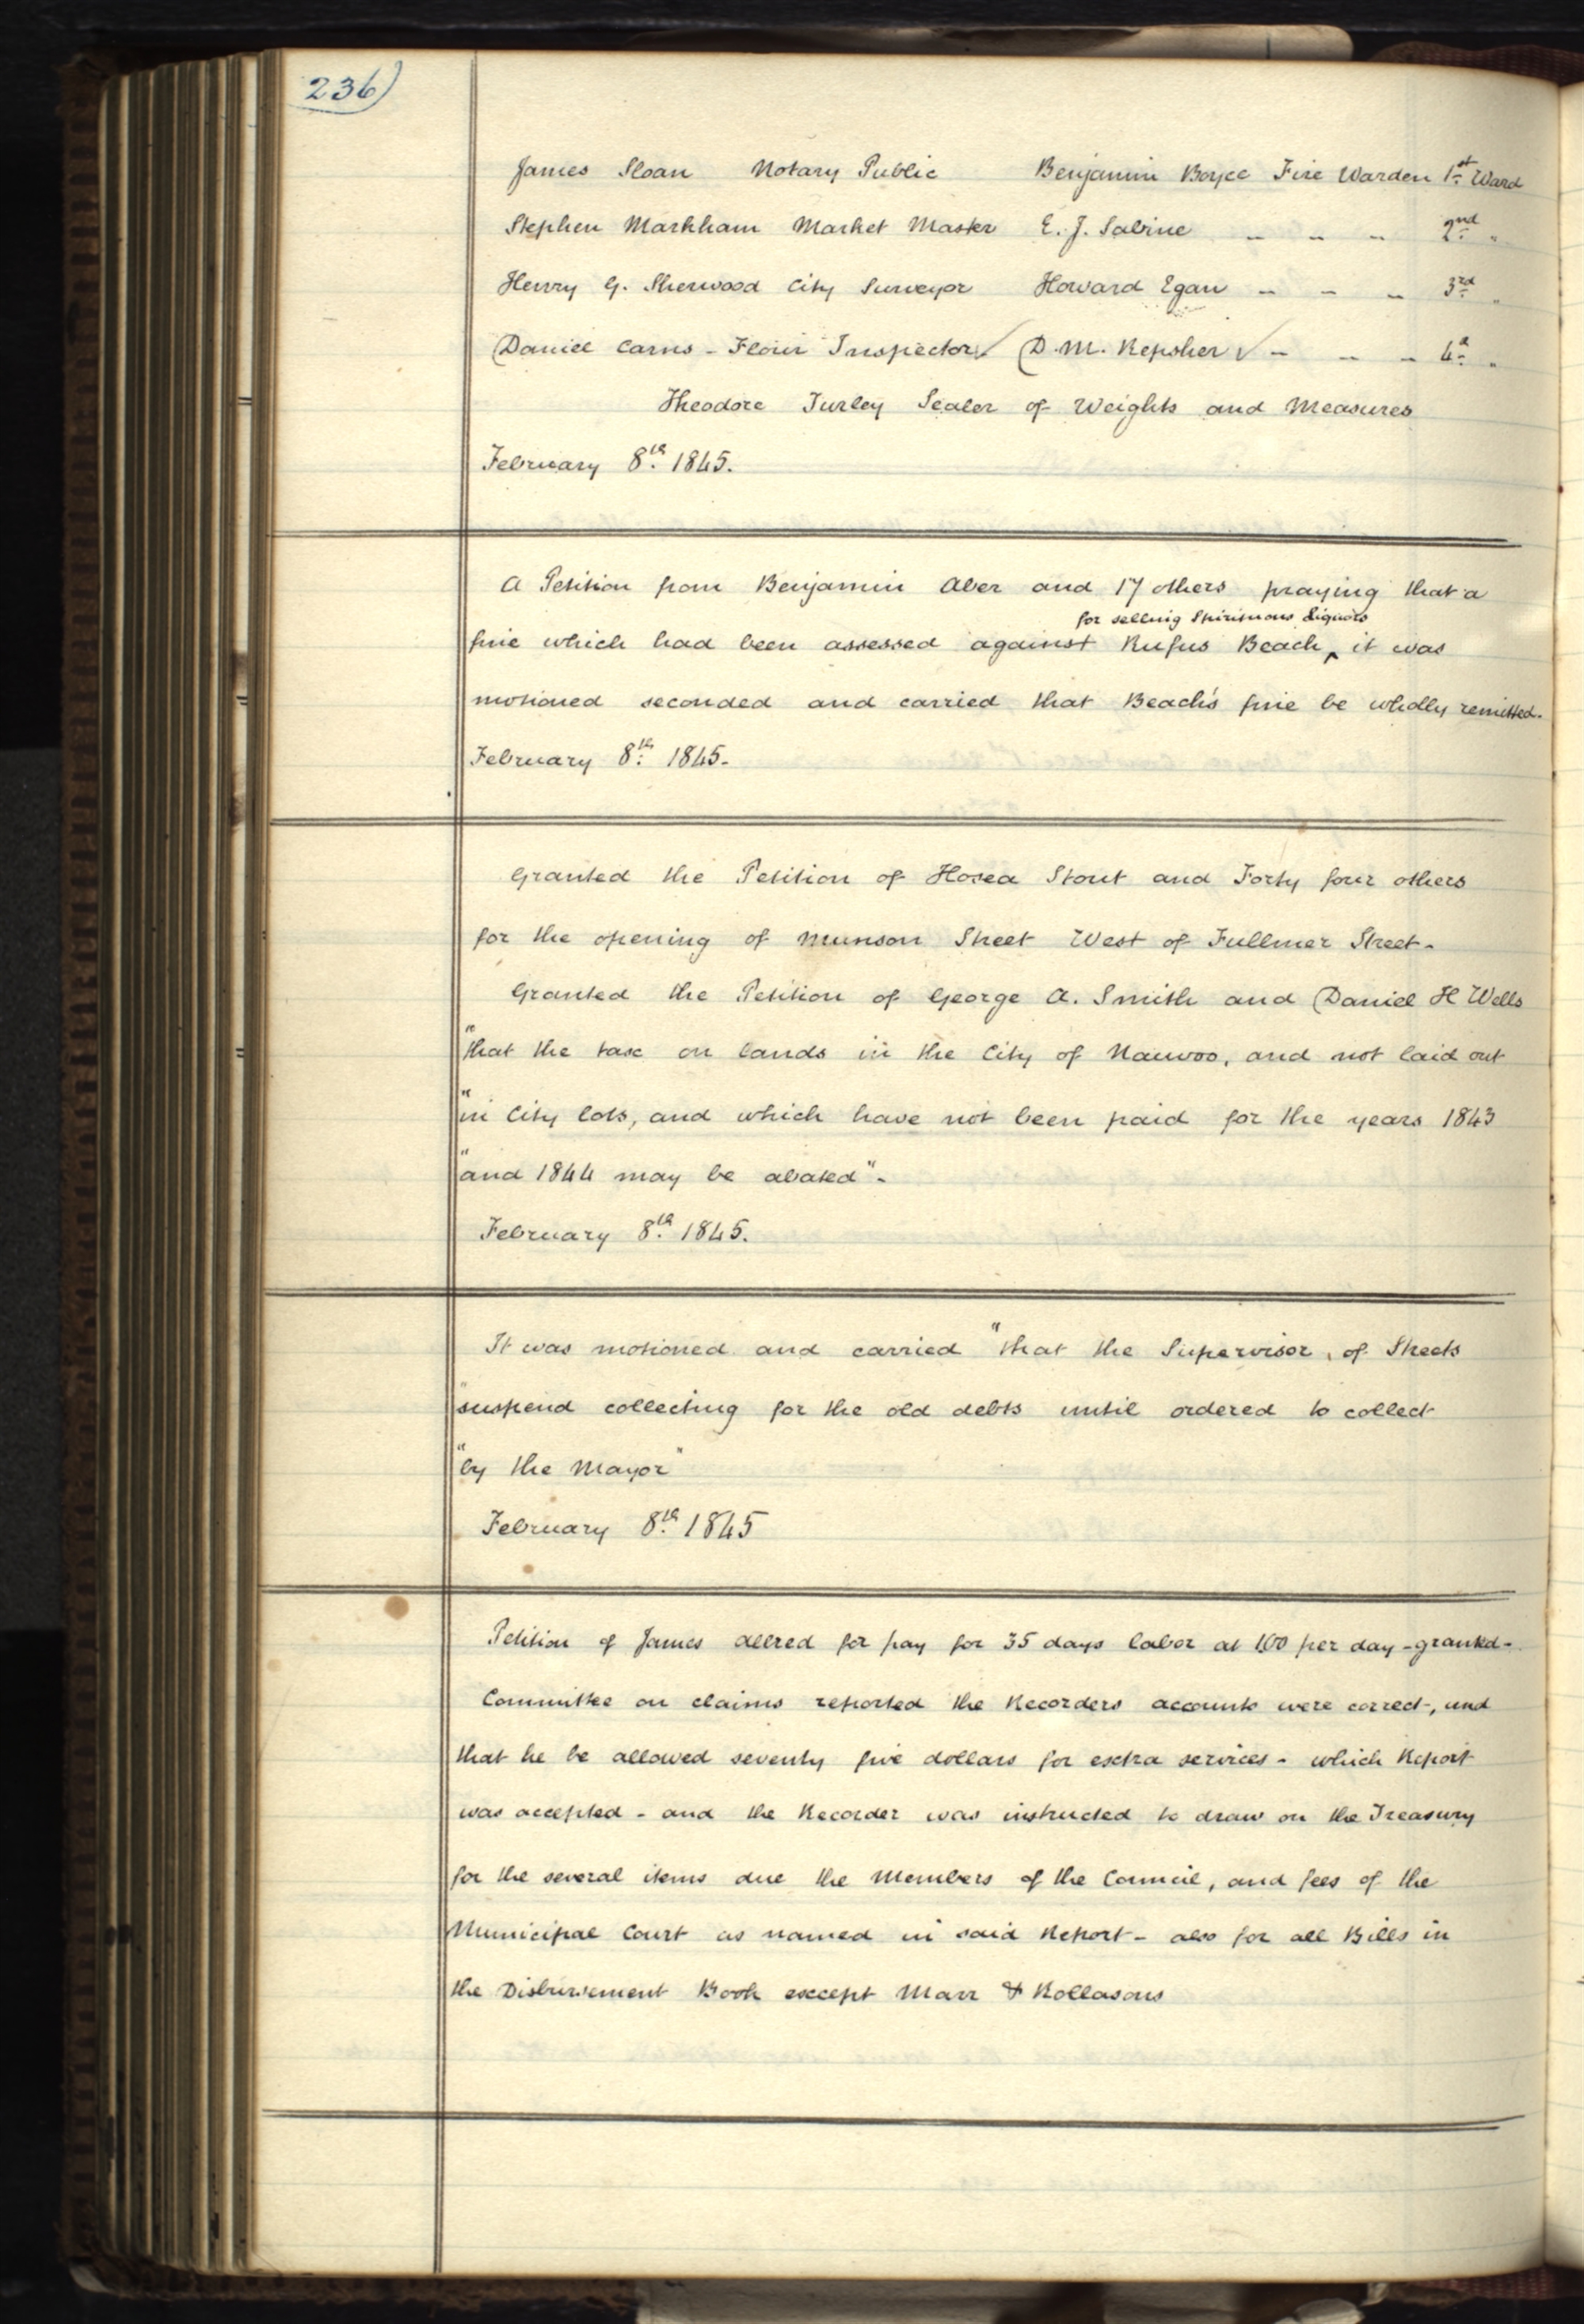 236)
James Sloan Notary Public Benjamin Boyce Fire Warden 1st Ward
Stephen Markham Market Master E. J. Sabine " " " 2nd "
Henry G. Sherwood City Surveyor Howard Egan " " " 3rd "
Daniel Carns - Flour Inspector ✓ D. M. Repsher ✓ " " " 4th "
Theodore Turley Sealer of Weights and Measures
February 8th 1845.
A Petition from Benjamin Aber and 17 others praying that a
for selling Spirituous Liquors
fine which had been assessed against Rufus Beach ‸ it was
motioned seconded and carried that Beach's fine be wholly remitted.
February 8th 1845.
Granted the Petition of Hosea Stout and Forty four others
for the opening of Munson Street West of Fullmer Street.
Granted the Petition of George A. Smith and Daniel H Wells
"that the tax on lands in the City of Nauvoo, and not laid out
"in City lots, and which have not been paid for the years 1843
"and 1844 may be abated".
February 8th 1845.
It was motioned and carried "that the Supervisor, of Streets
"suspend collecting for the old debts until ordered to collect
"by the Mayor"
February 8th 1845
Petition of James Allred for pay for 35 days labor at 1.00 per day - granted -
Committee on claims reported the Recorders accounts were correct -, and
that he be allowed seventy five dollars for extra services - which Report
was accepted - and the Recorder was instructed to draw on the Treasury
for the several items due the Members of the Council, and fees of the
Municipal Court as named in said Report - also for all Bills in
the Disbursement Book except Marr & Rollasons